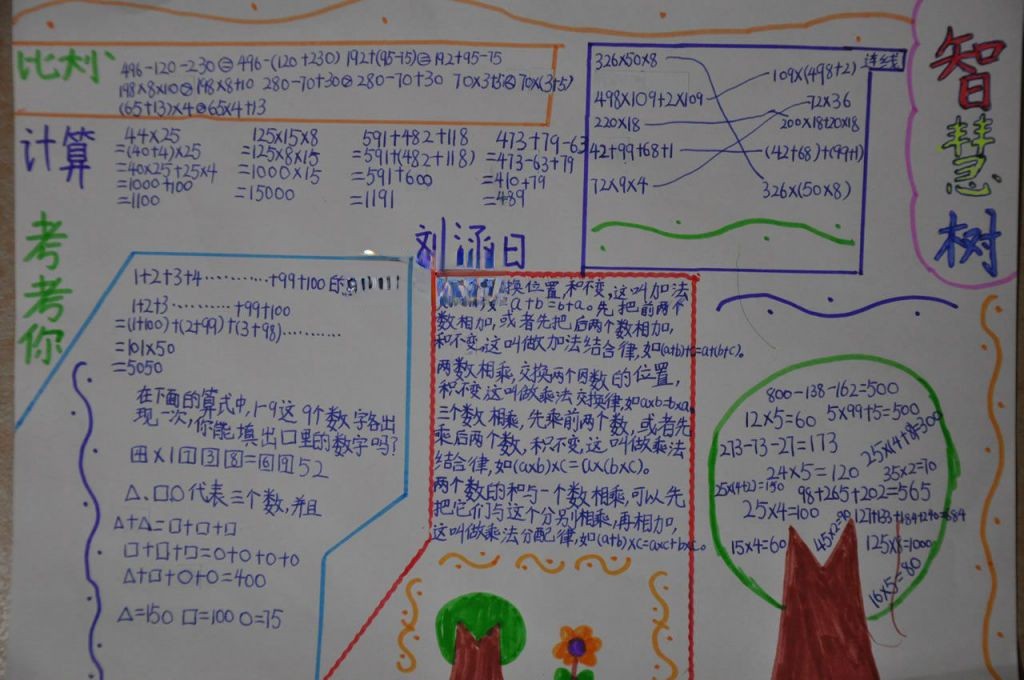 智慧树
比划
496-120-230=496-(120+230) 192+(95-75)=192+95-75
198×8×10 198×8+10 280-70+30 280-70+30 70×3+5 70×(3+5)
(65+13)×4 65×4+13
计算
44×25
=(40+4)×25
=40×25+25×4
=1000+100
=1100
125×15×8
=125×8×15
=1000×15
=15000
591+482+118
=591+(482+118)
=591+600
=1191
473+79-63
=473-63+79
=410+79
=489
连线
326×50×8
498×109+2×109
220×18
42+99+68+1
72×9×4
109×(498+2)
72×36
200×18+20×18
(42+68)+(99+1)
326×(50×8)
刘涵日
考考你
1+2+3+4…………+99+100的
1+2+3…………+99+100
=(1+100)+(2+99)+(3+98)…………
=101×50
=5050
在下面的算式中,1-9这9个数字各出
现一次,你能填出口里的数字吗?
4×1738=6952
△、□○代表三个数,并且
△+△=□+□+□
□+□+□=○+○+○+○
△+□+○+○=400
△=150 □=100 ○=75
换位置,和不变,这叫加法
a+b=b+a。先把前两个
数相加,或者先把后两个数相加,
和不变,这叫做加法结合律,如(a+b)+c=a+(b+c)。
两数相乘,交换两个因数的位置,
积不变这叫做乘法交换律,如a×b=b×a。
三个数相乘,先乘前两个数,或者先
乘后两个数,积不变,这叫做乘法
结合律,如(a×b)×c=a×(b×c)。
两个数的和与一个数相乘,可以先
把它们与这个分别相乘,再相加,
这叫做乘法分配律,如(a+b)×c=a×c+b×c。
800-138-162=500
12×5=60 5×99+5=500
273-73-27=173
25×4+8=300
24×5=120 35×2=70
25×(4+2)=150 98+265+202=565
25×4=100 45×2=90
15×4=60 125×8=1000
16×5=80